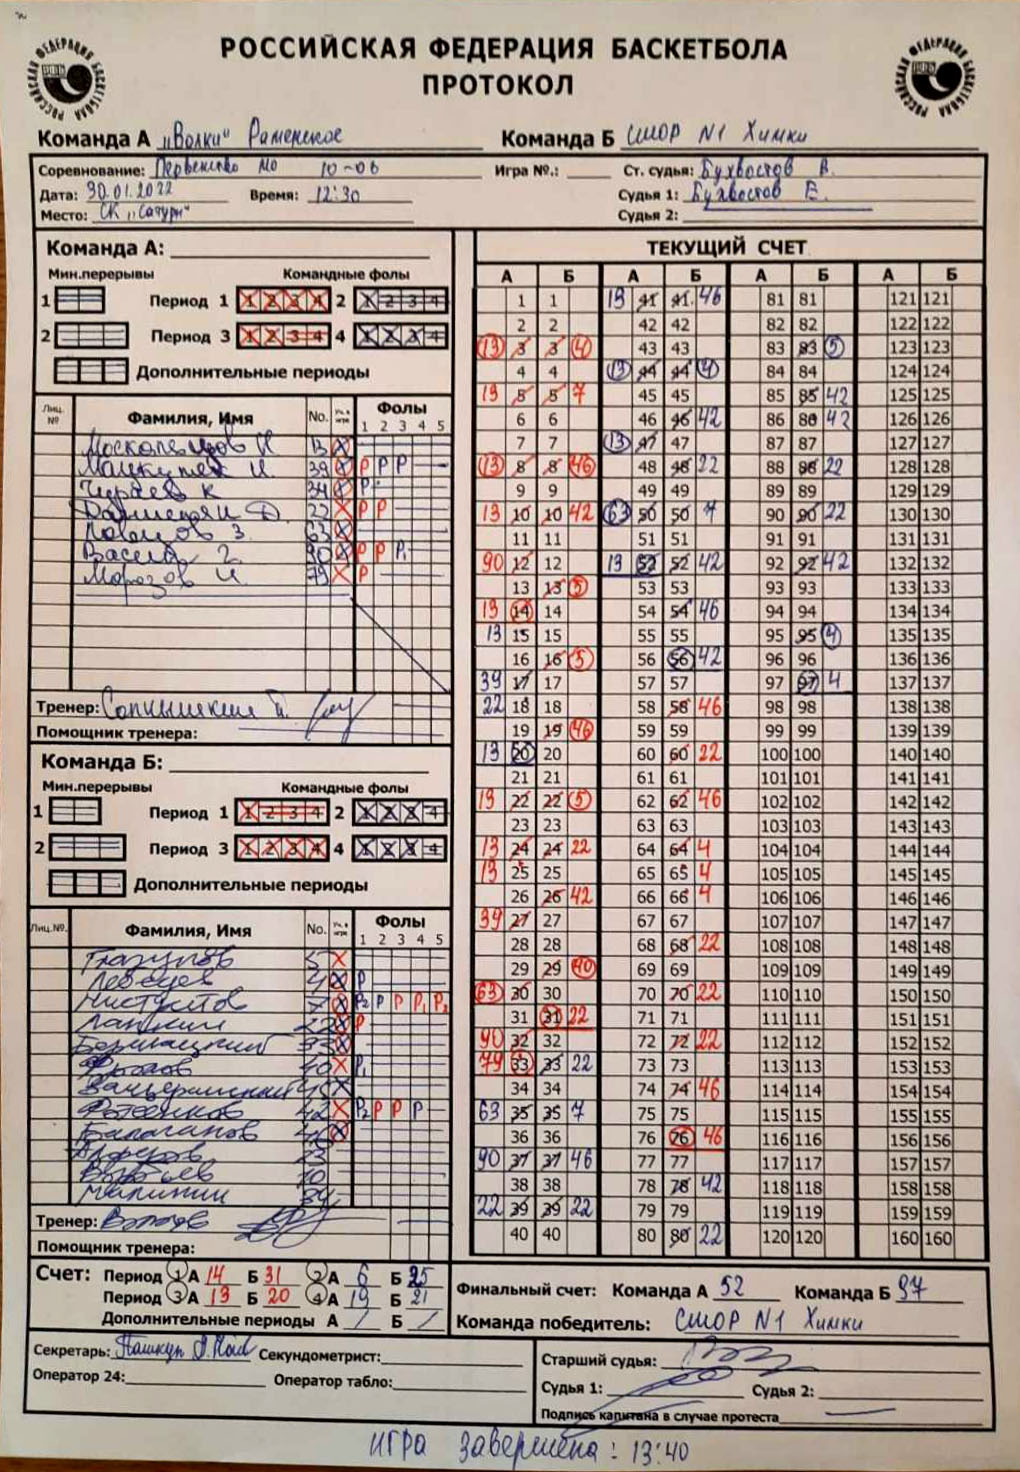 РОССИЙСКАЯ ФЕДЕРАЦИЯ БАСКЕТБОЛА
ПРОТОКОЛ
Команда А „Волки“ Раменское Команда Б СШОР N1 Химки
Соревнование: Первенство МО 10-06 Игра №.: Ст. судья: Бухвостов В.
Дата: 30.01.2022 Время: 12:30 Судья 1: Бухвостов В.
Место: СК „Сатурн“ Судья 2:
Команда А:
Мин.перерывы Командные фолы
1 Период 1 1 2 3 4 2 1 2 3 4
2 Период 3 1 2 3 4 4 1 2 3 4
Дополнительные периоды
Лиц. № Фамилия, Имя No. Уч. в игре Фолы
1 2 3 4 5
13
39 P P P
Чураев К 34 P
22 P P
63
90 P P P
Морозов И 79 P
Тренер:
Помощник тренера:
Команда Б:
Мин.перерывы Командные фолы
1 Период 1 1 2 3 4 2 1 2 3 4
2 Период 3 1 2 3 4 4 1 2 3 4
Дополнительные периоды
Лиц.№. Фамилия, Имя No. Уч. в игре Фолы
1 2 3 4 5
5
Лебедев 4 P
7 P2 P P P1 P2
Лапкин 22 P
Фролов 40 P1
42 P2 P P P
Балаганов 46
Тренер:
Помощник тренера:
Счет: Период 1 А 14 Б 31 2 А 6 Б 25
Период 3 А 13 Б 20 4 А 19 Б 21
Дополнительные периоды А / Б /
ТЕКУЩИЙ СЧЕТ
А Б А Б А Б А Б
1 1 13 41 41 46 81 81 121 121
2 2 42 42 82 82 122 122
13 3 3 4 43 43 83 83 5 123 123
4 4 13 44 44 4 84 84 124 124
13 5 5 7 45 45 85 85 42 125 125
6 6 46 46 42 86 86 42 126 126
7 7 13 47 47 87 87 127 127
13 8 8 46 48 48 22 88 88 22 128 128
9 9 49 49 89 89 129 129
13 10 10 42 63 50 50 7 90 90 22 130 130
11 11 51 51 91 91 131 131
90 12 12 13 52 52 42 92 92 42 132 132
13 13 5 53 53 93 93 133 133
13 14 14 54 54 46 94 94 134 134
13 15 15 55 55 95 95 4 135 135
16 16 5 56 56 42 96 96 136 136
39 17 17 57 57 97 97 4 137 137
22 18 18 58 58 46 98 98 138 138
19 19 46 59 59 99 99 139 139
13 20 20 60 60 22 100 100 140 140
21 21 61 61 101 101 141 141
13 22 22 5 62 62 46 102 102 142 142
23 23 63 63 103 103 143 143
13 24 24 22 64 64 4 104 104 144 144
13 25 25 65 65 4 105 105 145 145
26 26 42 66 66 4 106 106 146 146
39 27 27 67 67 107 107 147 147
28 28 68 68 22 108 108 148 148
29 29 40 69 69 109 109 149 149
63 30 30 70 70 22 110 110 150 150
31 31 22 71 71 111 111 151 151
90 32 32 72 72 22 112 112 152 152
79 33 33 22 73 73 113 113 153 153
34 34 74 74 46 114 114 154 154
63 35 35 7 75 75 115 115 155 155
36 36 76 76 46 116 116 156 156
90 37 37 46 77 77 117 117 157 157
38 38 78 78 42 118 118 158 158
22 39 39 22 79 79 119 119 159 159
40 40 80 80 22 120 120 160 160
Финальный счет: Команда А 52 Команда Б 97
Команда победитель: СШОР N1 Химки
Секретарь: Секундометрист:
Оператор 24: Оператор табло:
Старший судья:
Судья 1: Судья 2:
Подпись капитана в случае протеста
ИГРА завершена: 13:40